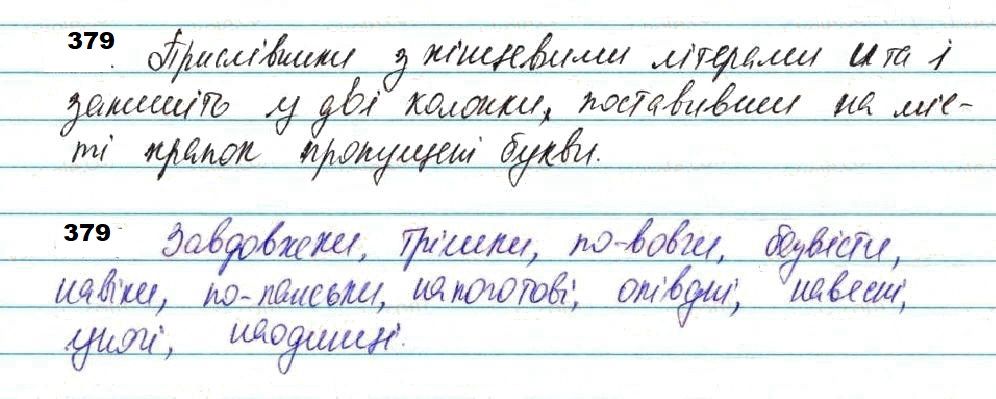 379 Прислівники з кінцевими літерами и та і
запишіть у дві колонки, поставивши на міс-
ті крапок пропущені букви.
379 Завдовжки, трішки, по-вовчи, безвісти,
навіки, по-панськи, напоготові, опівдні, навесні,
уночі, наодинці.